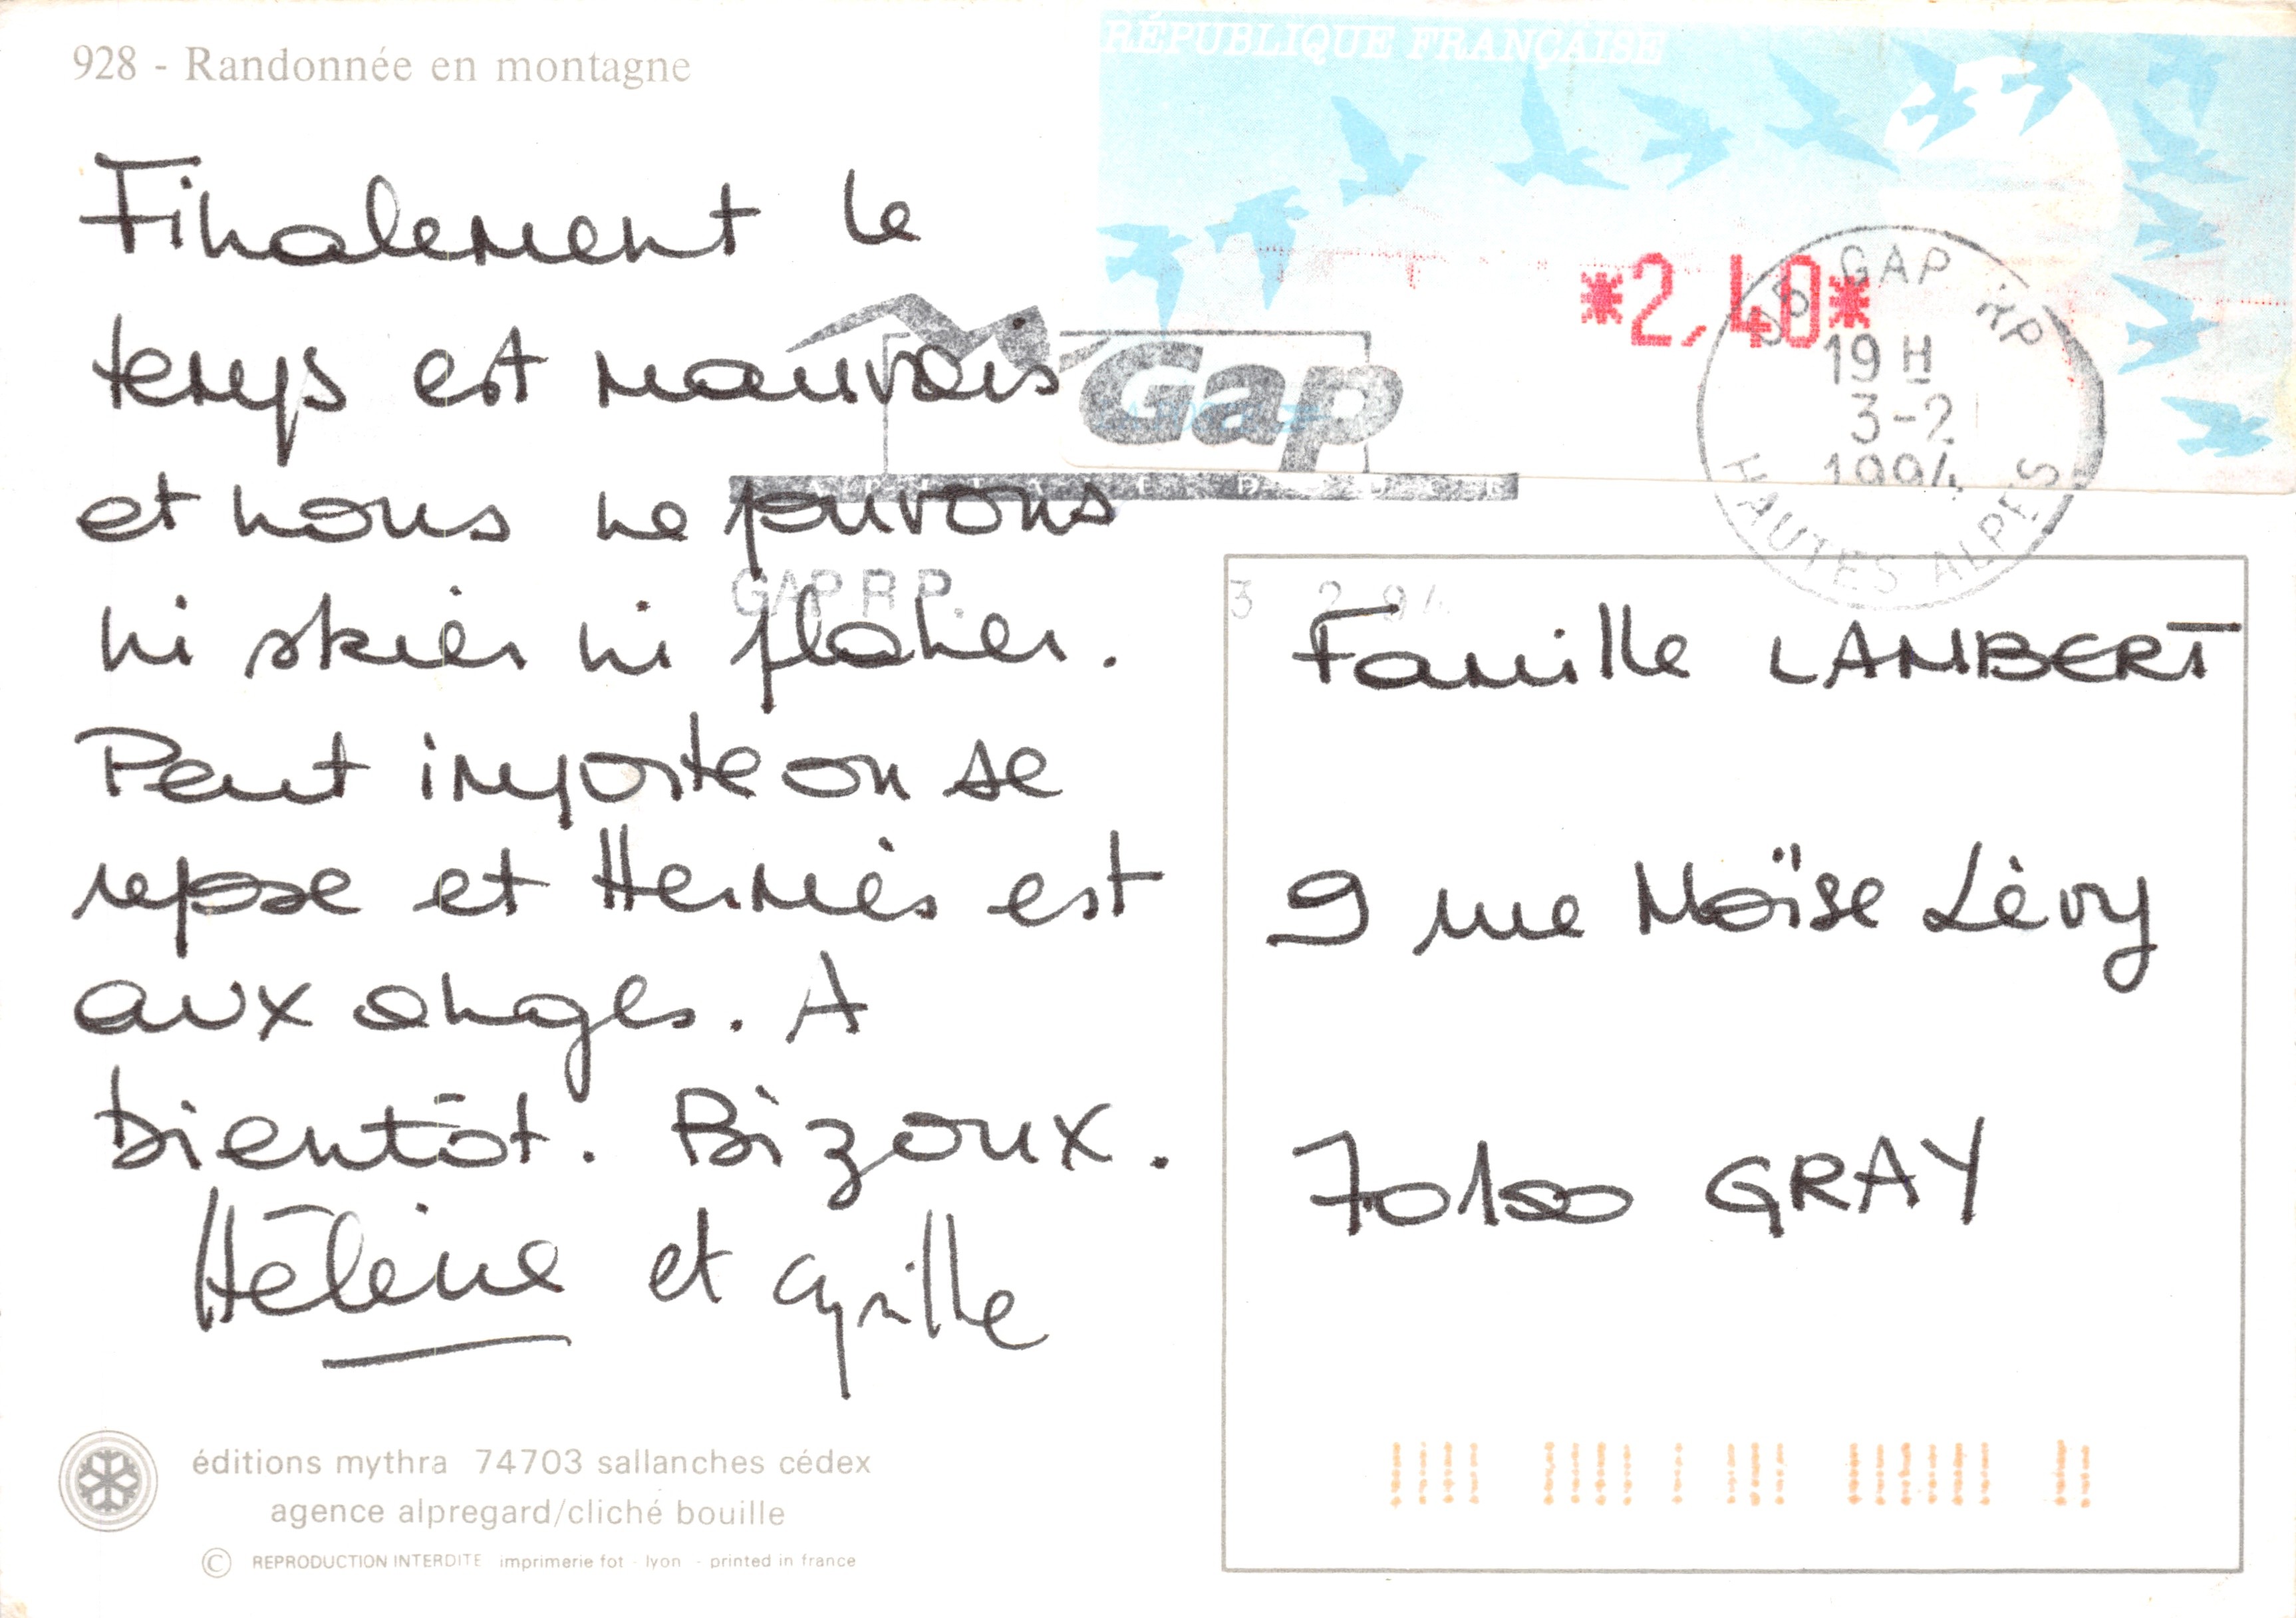 928 - Randonnée en montagne
RÉPUBLIQUE FRANÇAISE
*2,40*
GAP RP
19 H
3-2
1994
HAUTES ALPES
Gap
GAP R P.
3 2 94
Finalement le
temps est mauvais
et nous ne pouvons
ni skier ni flâner.
Peut importe on se
repose et Hermès est
aux anges. A
bientôt. Bizoux.
Hélène et Cyrille
Famille LAMBERT
9 rue Moïse Lèvy
70100 GRAY
éditions mythra 74703 sallanches cédex
agence alpregard/cliché bouille
© REPRODUCTION INTERDITE imprimerie fot - lyon - printed in france